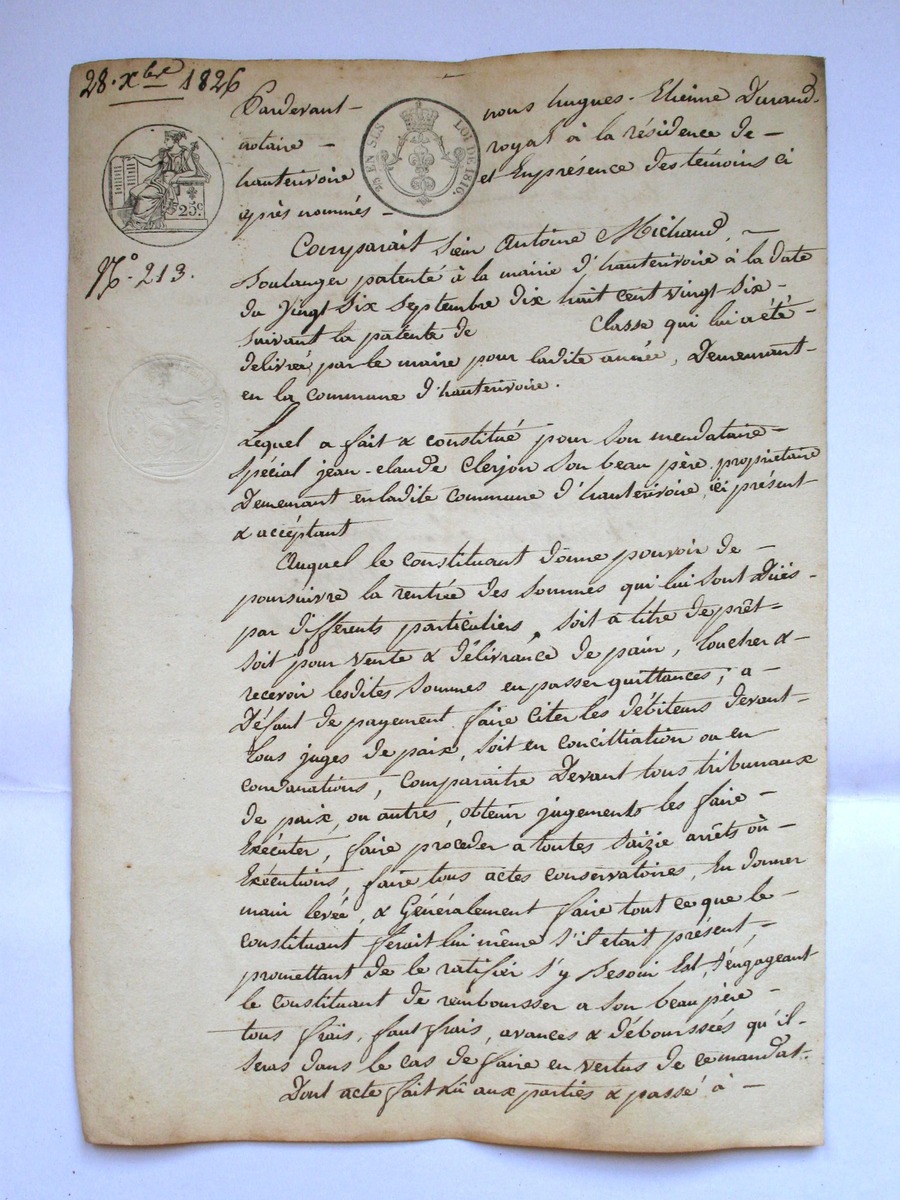 28. Xbre 1826
Pardevant - nous hugues - Etienne Durand.
notaire - royal à la résidence de -
hauterivoire et En présence des témoins ci
après nommés -
25 EN SUS LOI DE 1816.
25c
No. 213.
Comparait Sieur Antoine Michaud, -
Boulanger patenté à la mairie d'hauterivoire à la date
du Vingt Six Septembre dix huit cent vingt six -
suivant la patente de Classe qui lui a été -
délivrée, par le maire pour ladite année, Demeurant -
en la commune d'hauterivoire.
Lequel a fait & constitué pour son mendataire -
spécial jean-claude Clerjon son beau père proprietaire
Demeurant en ladite commune d'hauterivoire, ici présent
& accéptant
Auquel le constituant donne pouvoir de -
poursuivre la rentrée des sommes qui lui sont Düés -
par différents particuliers, soit a titre de prêt -
soit pour vente & délivrance de pain, toucher & -
recevoir lesdites sommes en passer quittances; a -
Défaut de payement faire citer les débiteurs devant -
tous juges de paix, soit en concilliation ou en
comdanations, Comparaitre Devant tous tribunaux
de paix, ou autres, obtenir jugements les faire -
Exécuter, faire proceder a toutes saizie arrêts où -
Exécutions, faire tous actes conservatoires, En donner
main levée, & Généralement faire tout ce que le -
constituant ferait lui même s'il etait présent -
promettant de le ratifier s'y besoin Est, s'éngageant
le constituant de remboursser a son beau père -
tous frais, faut frais, avances & déboursseés qu'il -
seras dans le cas de faire en vertus de ce mandat -
Dont acte fait lû aux parties & passé à -